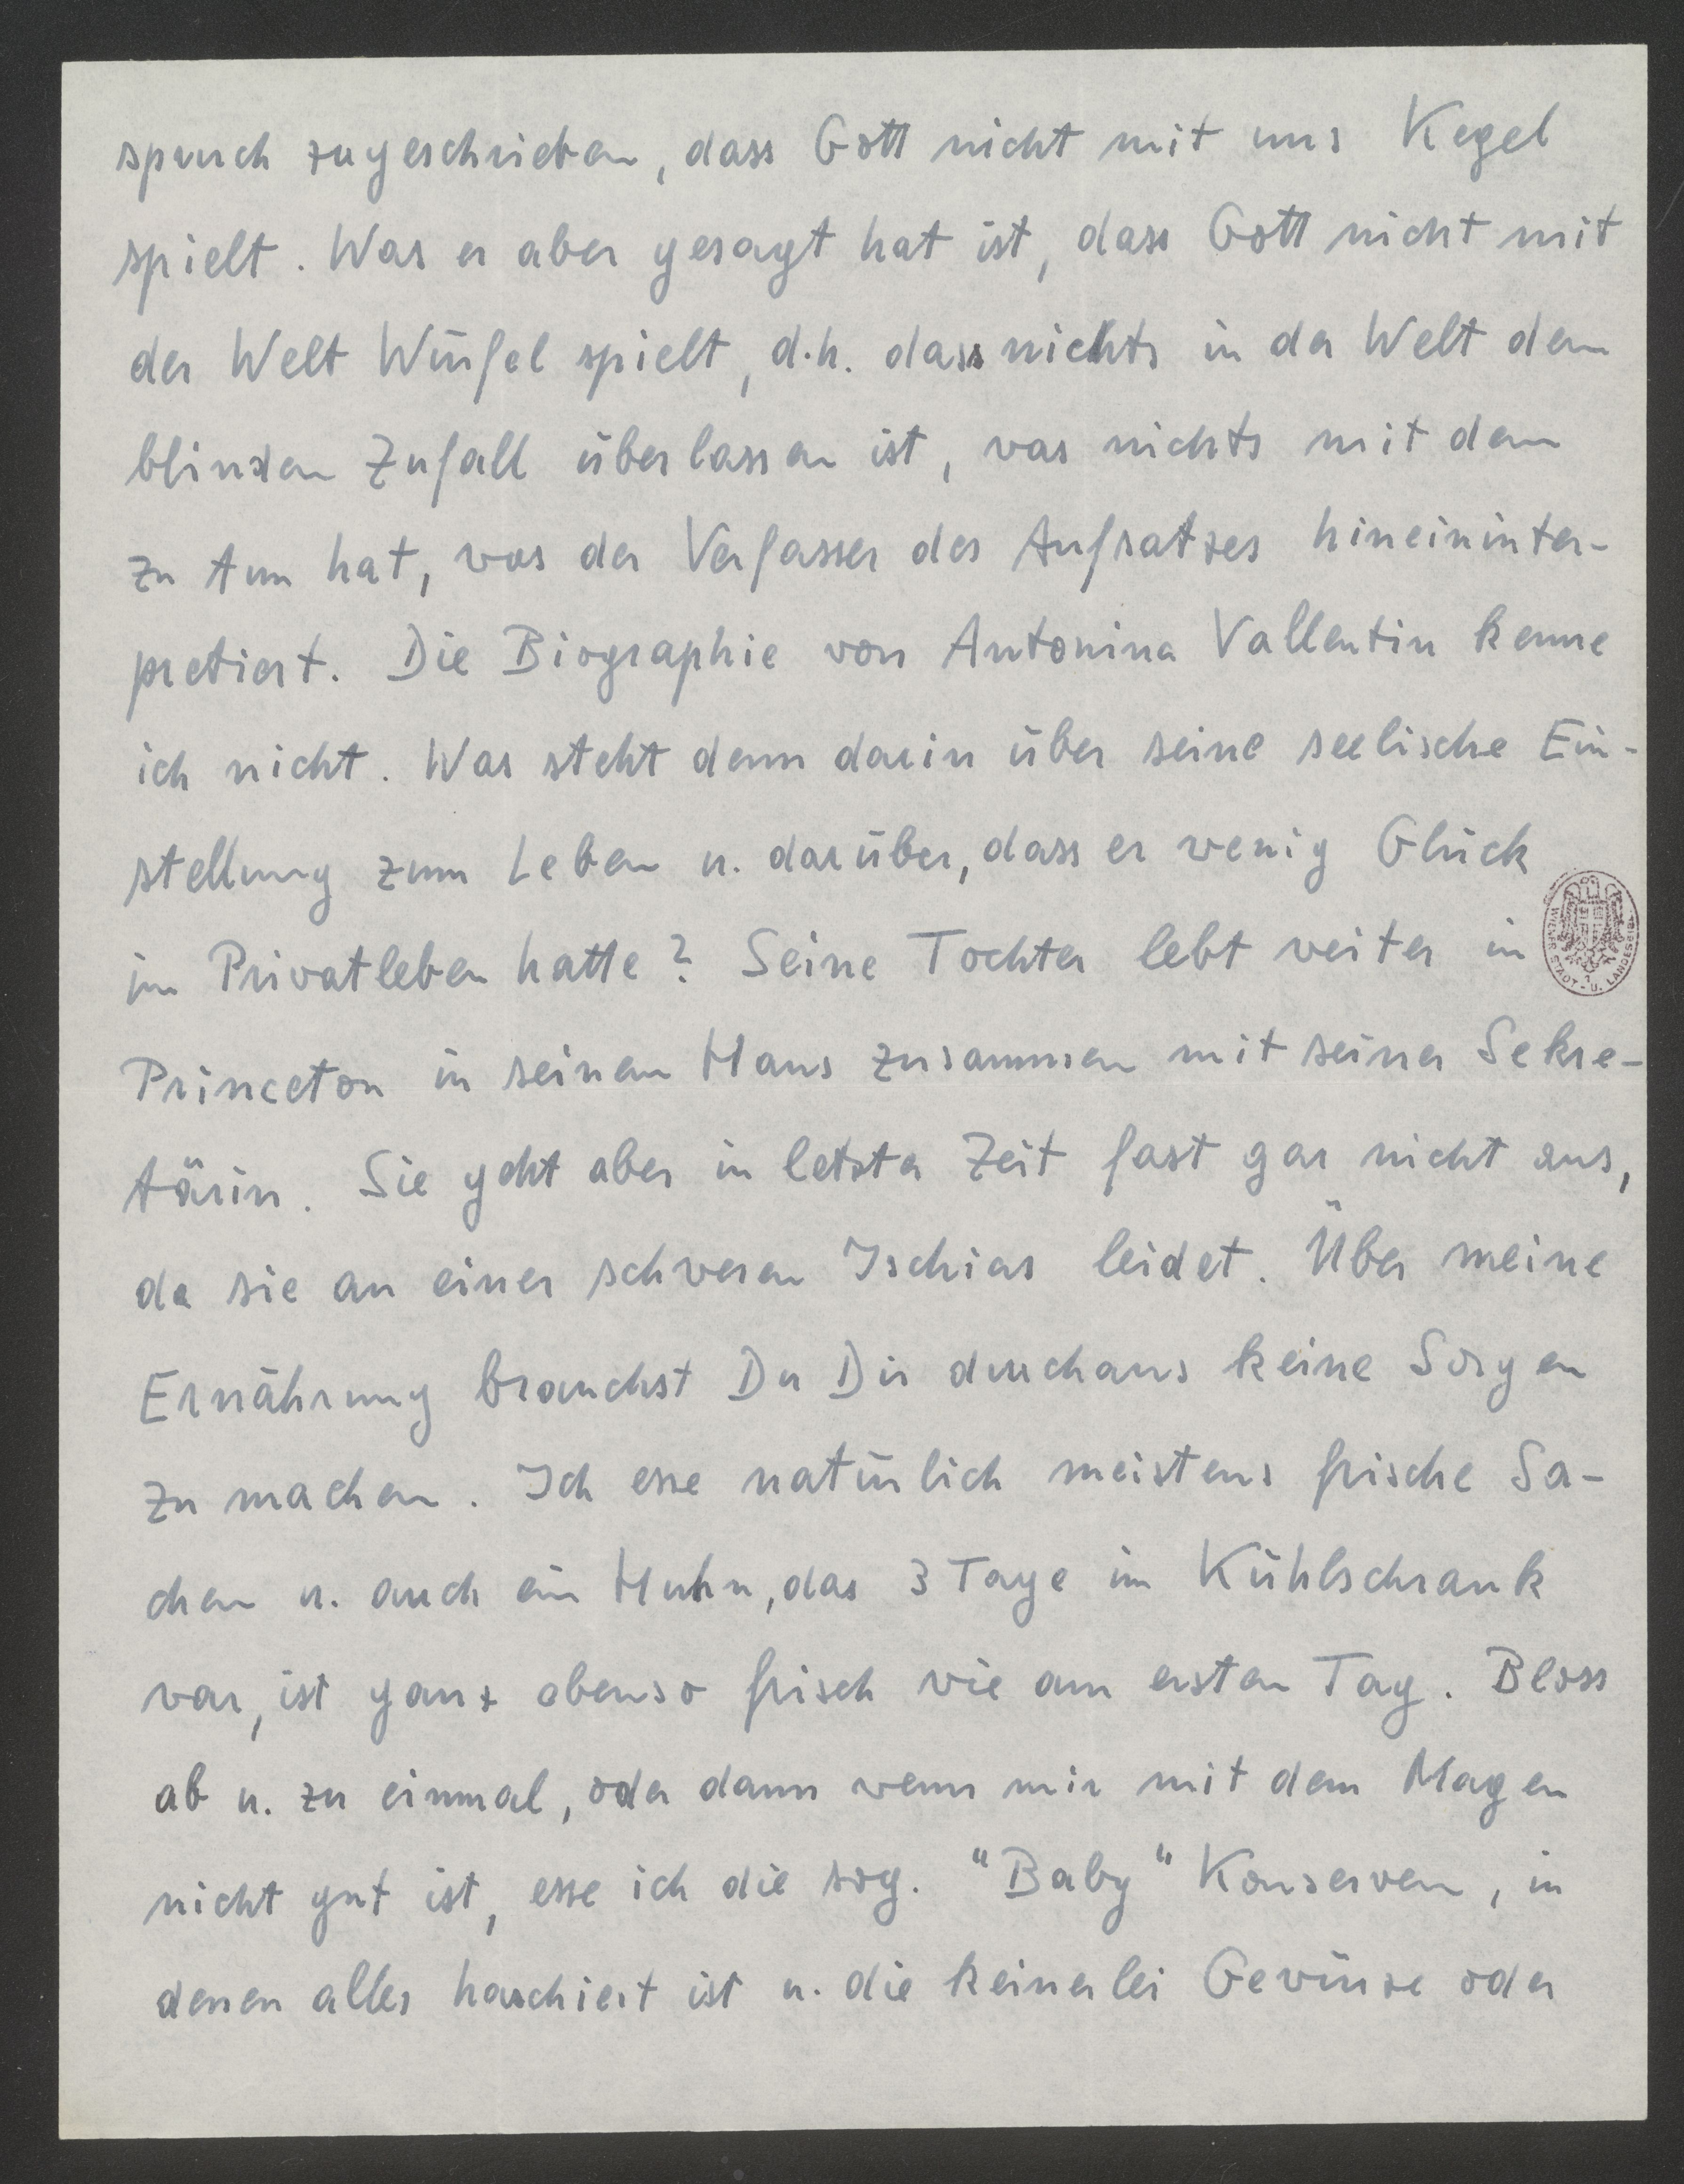 spruch zugeschrieben, dass Gott nicht mit uns Kegel
spielt. Was er aber gesagt hat ist, dass Gott nicht mit
der Welt Würfel spielt, d.h. dass nichts in der Welt dem
blinden Zufall überlassen ist, was nichts mit dem
zu tun hat, was der Verfasser des Aufsatzes hineininter-
pretiert. Die Biographie von Antonina Vallentin kenne
ich nicht. Was steht denn darin über seine seelische Ein-
stellung zum Leben u. darüber, dass er wenig Glück
im Privatleben hatte? Seine Tochter lebt weiter in
WIENER STADT- U. LANDESBIBL.
Princeton in seinem Haus zusammen mit seiner Sekre-
tärin. Sie geht aber in letzter Zeit fast gar nicht aus,
da sie an einer schweren Ischias leidet. Über meine
Ernährung brauchst Du Dir durchaus keine Sorgen
zu machen. Ich esse natürlich meistens frische Sa-
chen u. auch ein Huhn, das 3 Tage im Kühlschrank
war, ist ganz ebenso frisch wie am ersten Tag. Bloss
ab u. zu einmal, oder dann wenn mir mit dem Magen
nicht gut ist, esse ich die sog. "Baby" Konserven, in
denen alles haschiert ist u. die keinerlei Gewürze oder